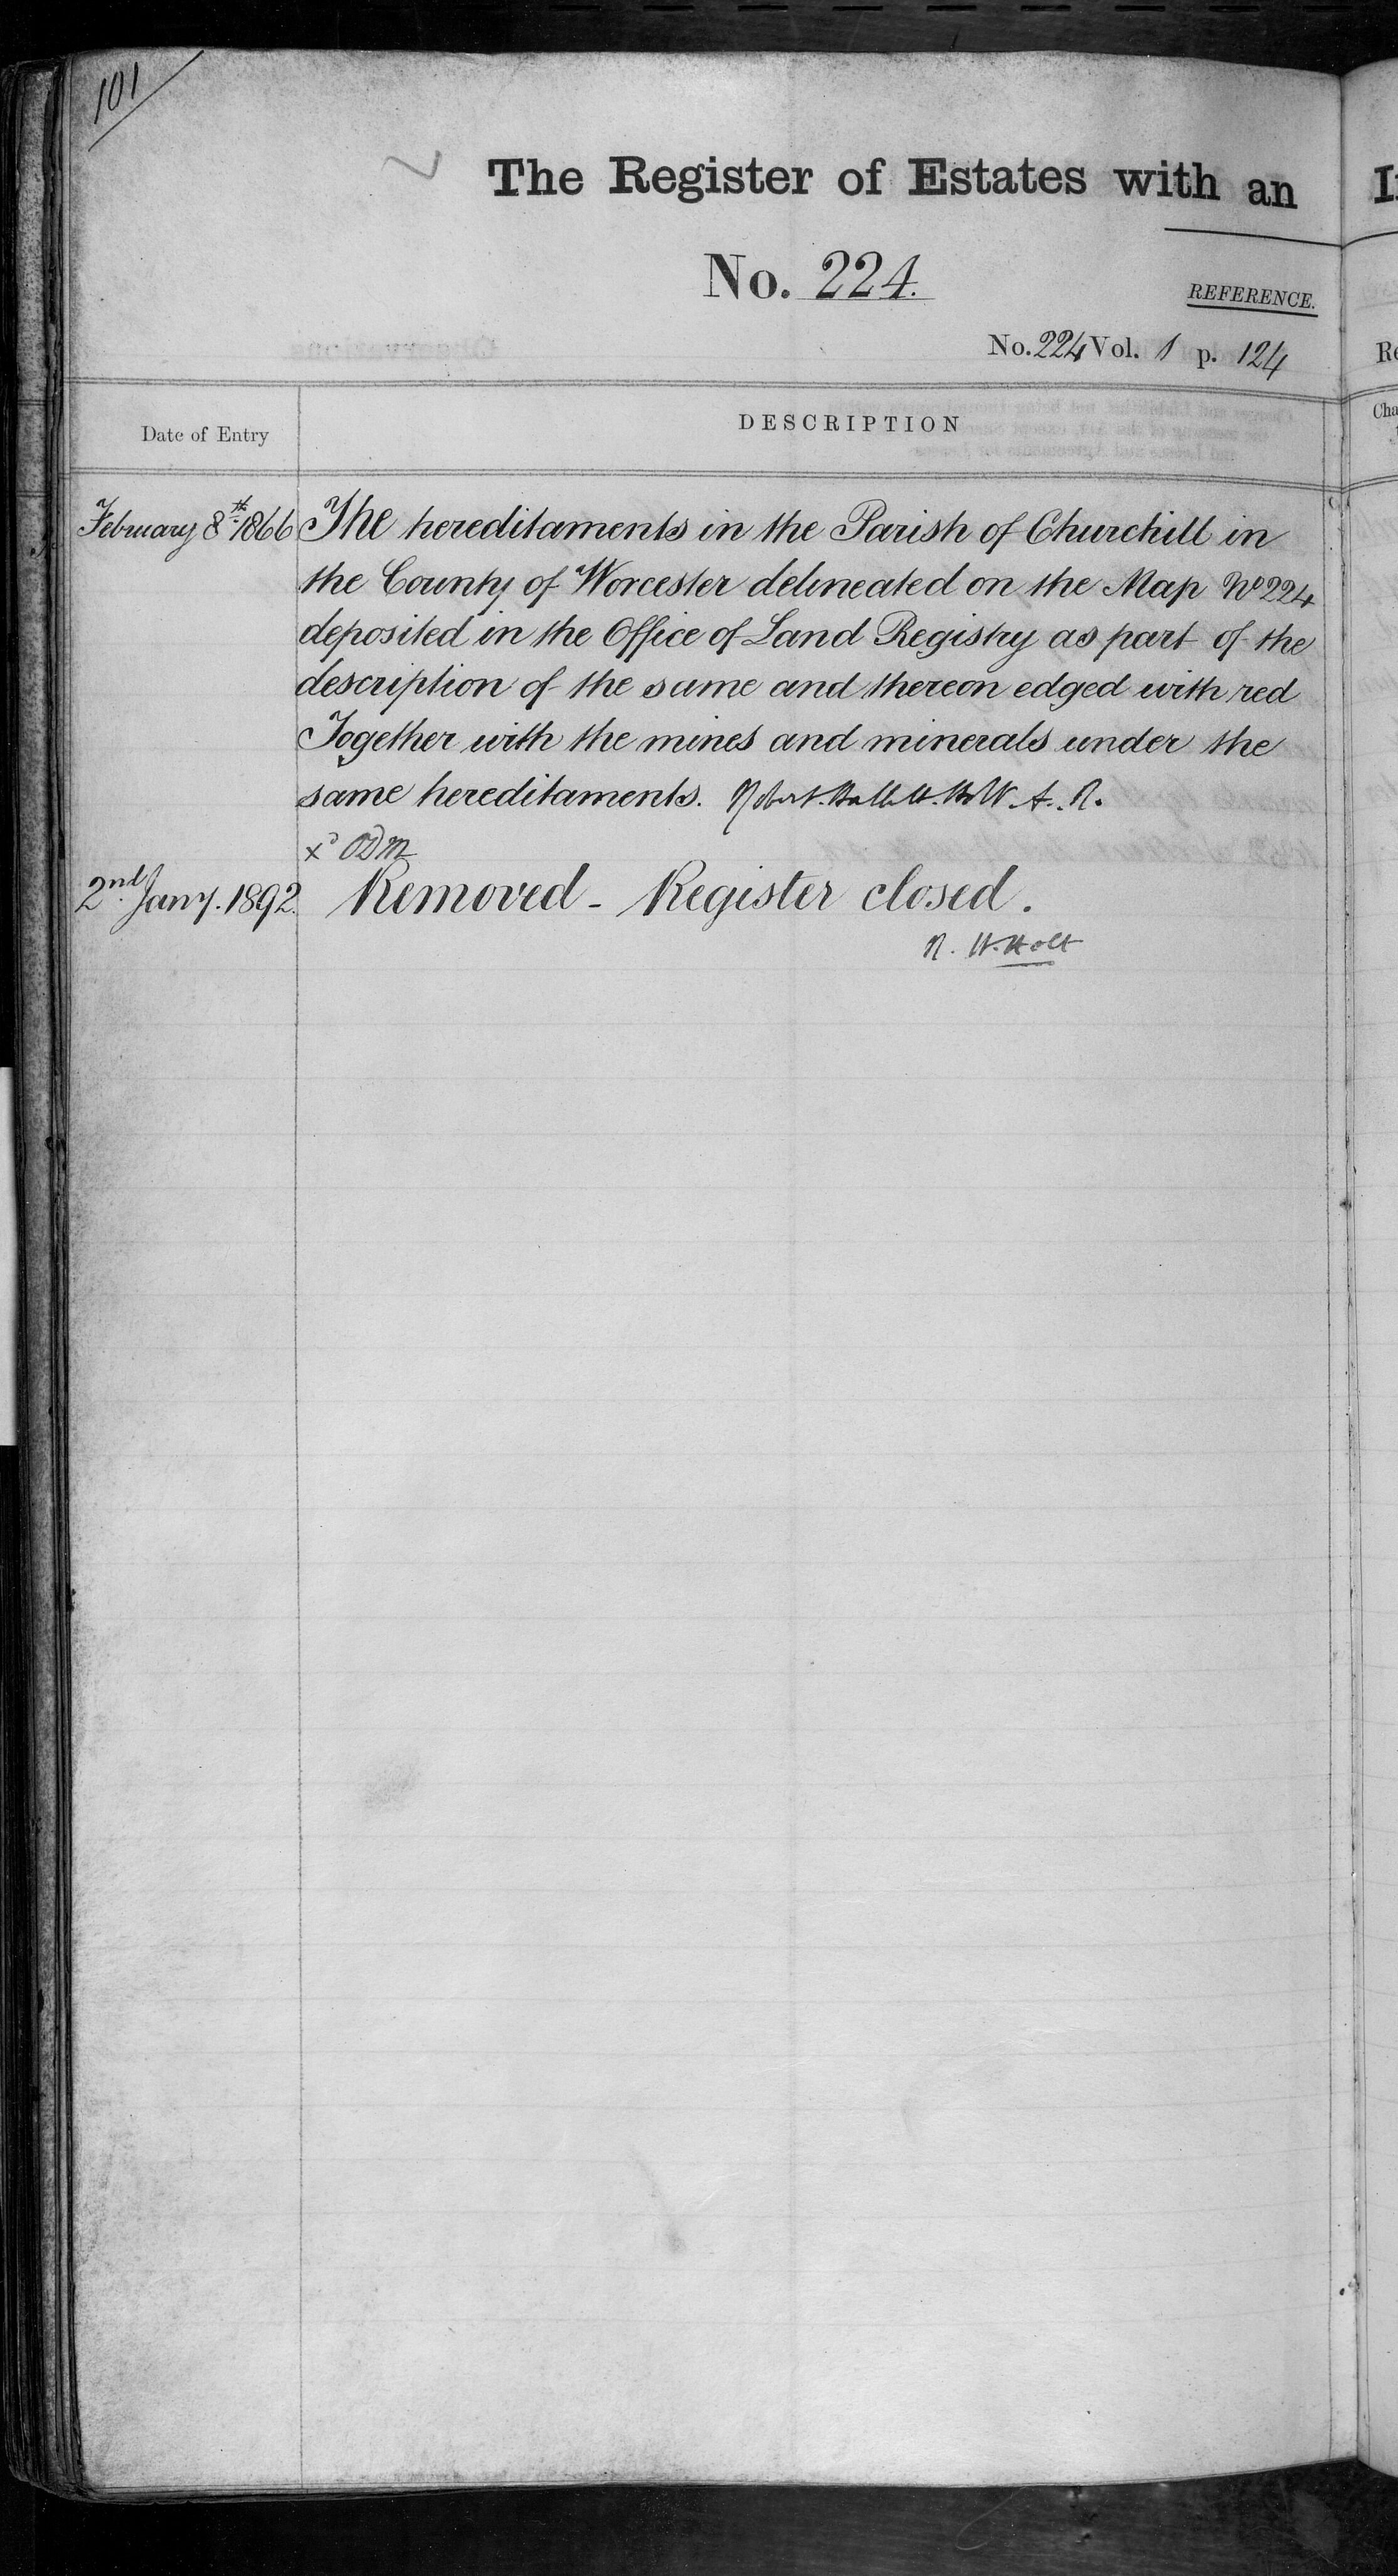 101
The Register of Estates with an
No. 224.
REFERENCE.
No. 224 Vol. 1 p. 124
Date of Entry
DESCRIPTION
February 8th 1866 The hereditaments in the Parish of Churchill in
the County of Worcester delineated on the Map No 224
deposited in the Office of Land Registry as part of the
description of the same and thereon edged with red
Together with the mines and minerals under the
same hereditaments. Robert Hallett Holt A. R.
xd ODM
2nd Jany. 1892. Removed - Register closed.
R. H. Holt